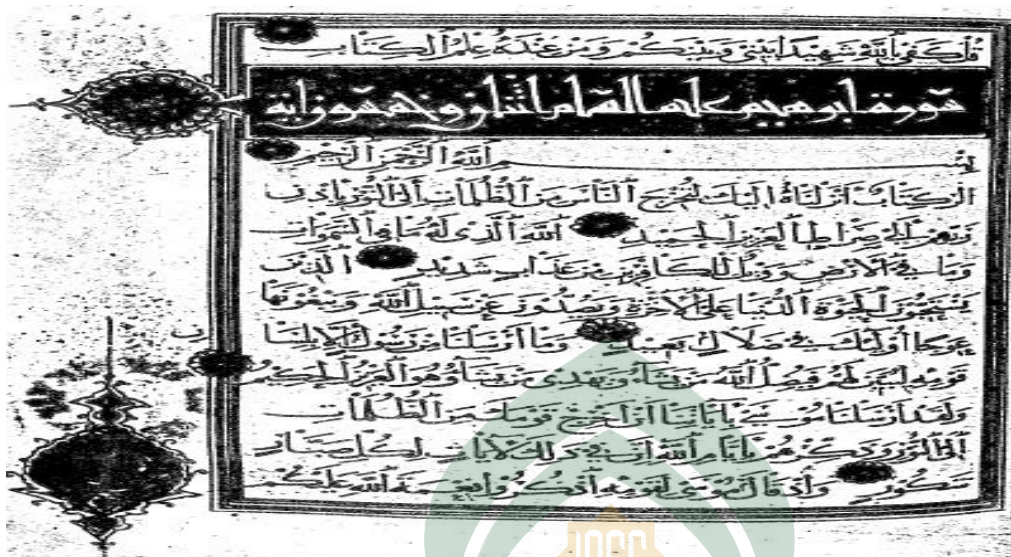 قل كفى بالله شهيدا بيني وبينكم ومن عنده علم الكتاب
سورة ابرهيم عليه السلام اثنان وخمسون اية
بسم الله الرحمن الرحيم
الر كتاب انزلناه اليك لتخرج الناس من الظلمات الى النور باذن
ربهم الى صراط العزيز الحميد الله الذي له ما في السموات
وما في الارض وويل للكافرين من عذاب شديد الذين
يستحبون الحيوة الدنيا على الاخرة ويصدون عن سبيل الله ويبغونها
عوجا اولئك في ضلال بعيد وما ارسلنا من رسول الا بلسان
قومه ليبين لهم فيضل الله من يشاء ويهدي من يشاء وهو العزيز الحكيم
ولقد ارسلنا موسى باياتنا ان اخرج قومك من الظلمات
الى النور وذكرهم بايام الله ان في ذلك لايات لكل صبار
شكور واذ قال موسى لقومه اذكروا نعمة الله عليكم